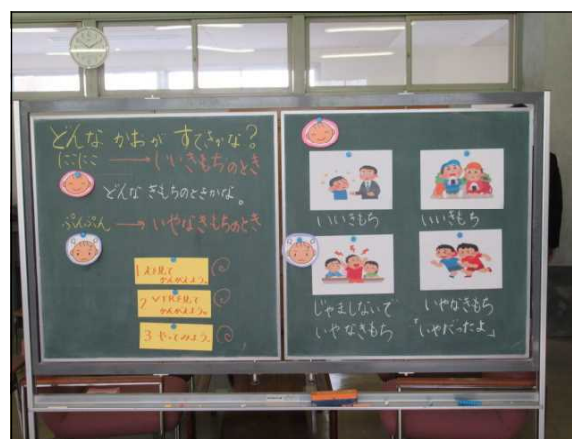 どんな かおが すてきかな?
にこにこ → いいきもちのとき
どんな きもちのときかな。
ぷんぷん → いやなきもちのとき
1 えを見て
かんがえよう。
2 VTRを見て
かんがえよう。
3 やってみよう。
いいきもち
いいきもち
じゃましないで
いやなきもち
いやなきもち
「いやだったよ」